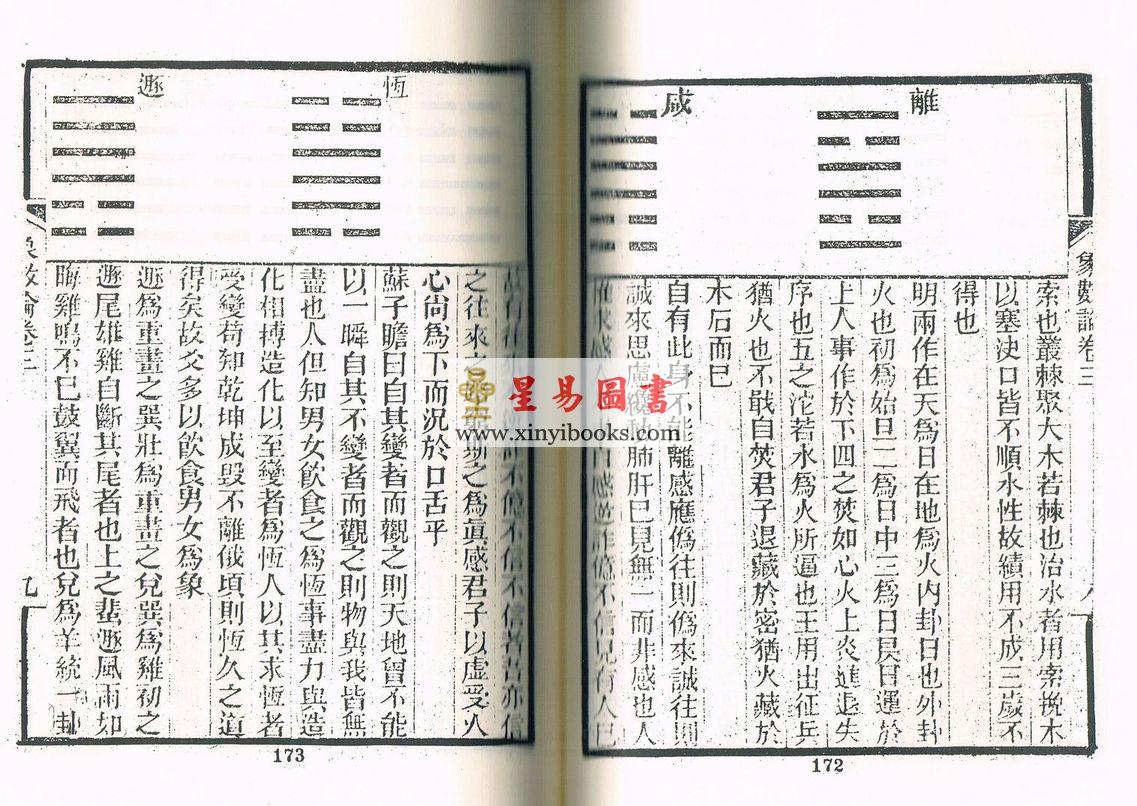 象數論卷三
離
咸
索也叢棘聚大木若棘也治水者用索挽木
以塞決口皆不順水性故績用不成三歲不
得也
明兩作在天爲日在地爲火内卦日也外卦
火也初爲始旦二爲日中三爲日昃日運於
上人事作於下四之焚如心火上炎進退失
序也五之沱若水爲火所逼也王用出征兵
猶火也不戢自焚君子退藏於密猶火藏於
木石而已
自有此身不能離感應僞往則僞來誠往則
誠來思慮纏 肺肝已見無一而非感也人
惟求感人 自感逆詐億不信見有人已
172
恒
遯
故有往 不億不信不信者吾亦信
之往來之 之爲眞感君子以虛受人
心尚爲下而況於口舌乎
蘇子瞻曰自其變者而觀之則天地曾不能
以一瞬自其不變者而觀之則物與我皆無
盡也人但知男女飲食之爲恒事盡力與造
化相搏造化以至變者爲恒人以其求恒者
受變苟知乾坤成毀不離俄頃則恒久之道
得矣故爻多以飲食男女爲象
遯爲重畫之巽壯爲重畫之兌巽爲雞初之
遯尾雄雞自斷其尾者也上之蜚遯風雨如
晦雞鳴不已鼓翼而飛者也兌爲羊統一卦
象數論卷三
九
173
星易圖書
www.xinyibooks.com